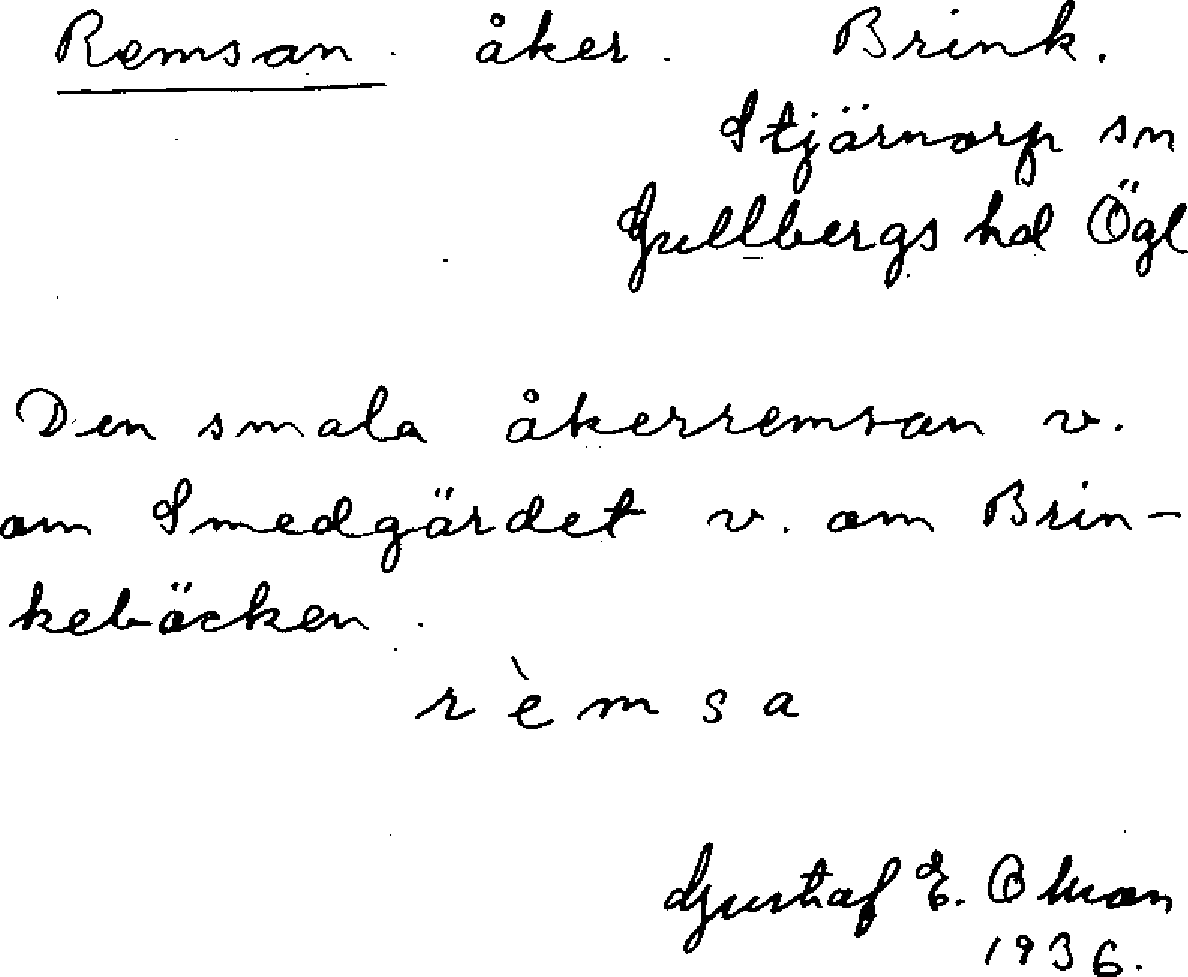 Remsan. åker. Brink.
Stjärnorp sn
Gullbergs hd Ögl
Den smala åkerremsan v.
om Smedgärdet v. om Brin-
kebäcken.
rèmsa
Gustaf E.
1936.